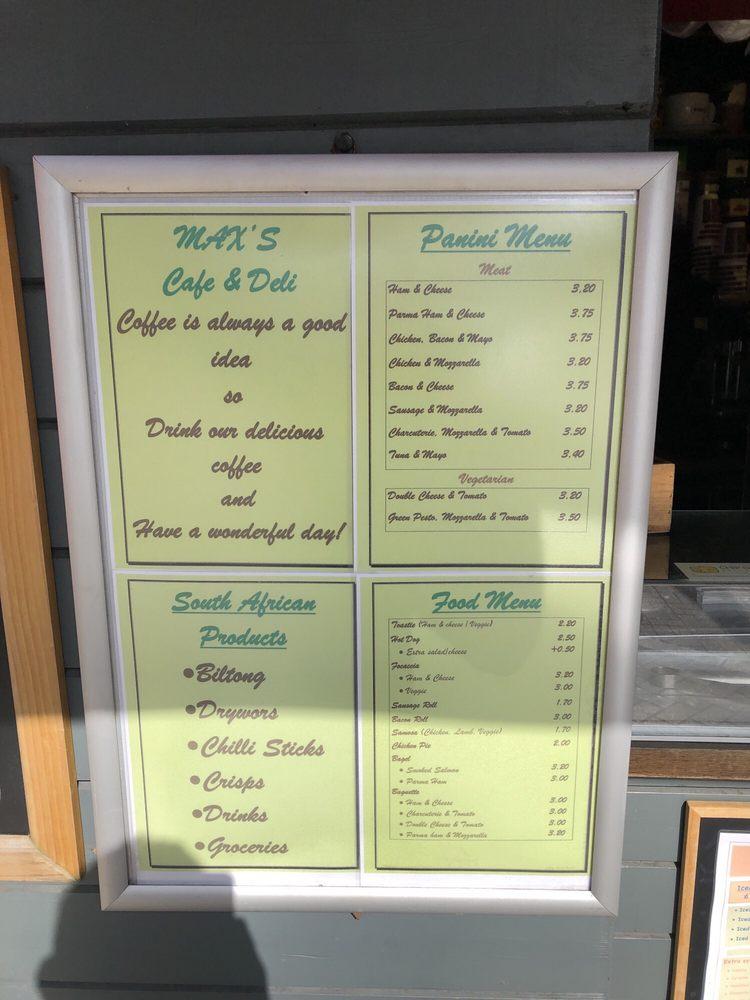 MAX'S
Cafe & Deli
Coffee is always a good
idea
so
Drink our delicious
coffee
and
Have a wonderful day!
Panini Menu
Meat
Ham & Cheese 3.20
Parma Ham & Cheese 3.75
Chicken, Bacon & Mayo 3.75
Chicken & Mozzarella 3.20
Bacon & Cheese 3.75
Sausage & Mozzarella 3.20
Charcuterie, Mozzarella & Tomato 3.50
Tuna & Mayo 3.40
Vegetarian
Double Cheese & Tomato 3.20
Green Pesto, Mozzarella & Tomato 3.50
South African
Products
•Biltong
•Drywors
•Chilli Sticks
•Crisps
•Drinks
•Groceries
Food Menu
Toastie (Ham & cheese / Veggie) 2.20
Hot Dog 2.50
• Extra salad/cheese +0.50
Focaccia
• Ham & Cheese 3.20
• Veggie 3.00
Sausage Roll 1.70
Bacon Roll 3.00
Samosa (Chicken, Lamb, Veggie) 1.70
Chicken Pie 2.00
Bagel
• Smoked Salmon 3.20
• Parma Ham 3.00
Baguette
• Ham & Cheese 3.00
• Charcuterie & Tomato 3.00
• Double Cheese & Tomato 3.00
• Parma ham & Mozzarella 3.20
Iced
• Iced
• Iced
• Iced